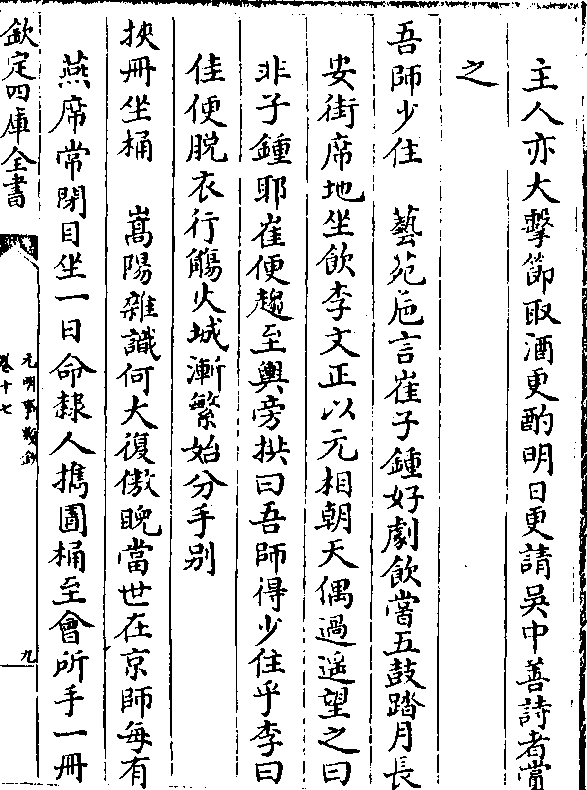 主人亦大擊節取酒更酌明日更請吳中善詩者賞
之
吾師少住　藝苑巵言崔子鍾好劇飲嘗五鼓踏月長
安街席地坐飲李文正以元相朝天偶過遥望之曰
非子鍾耶崔便趨至輿旁拱曰吾師得少住乎李曰
佳便脱衣行觴火城漸繁始分手别
挾冊坐桶　嵩陽雜識何大復傲睨當世在京師每有
燕席常閉目坐一日命隸人擕圊桶至會所手一冊
欽定四庫全書
元明事類鈔
卷十七
九